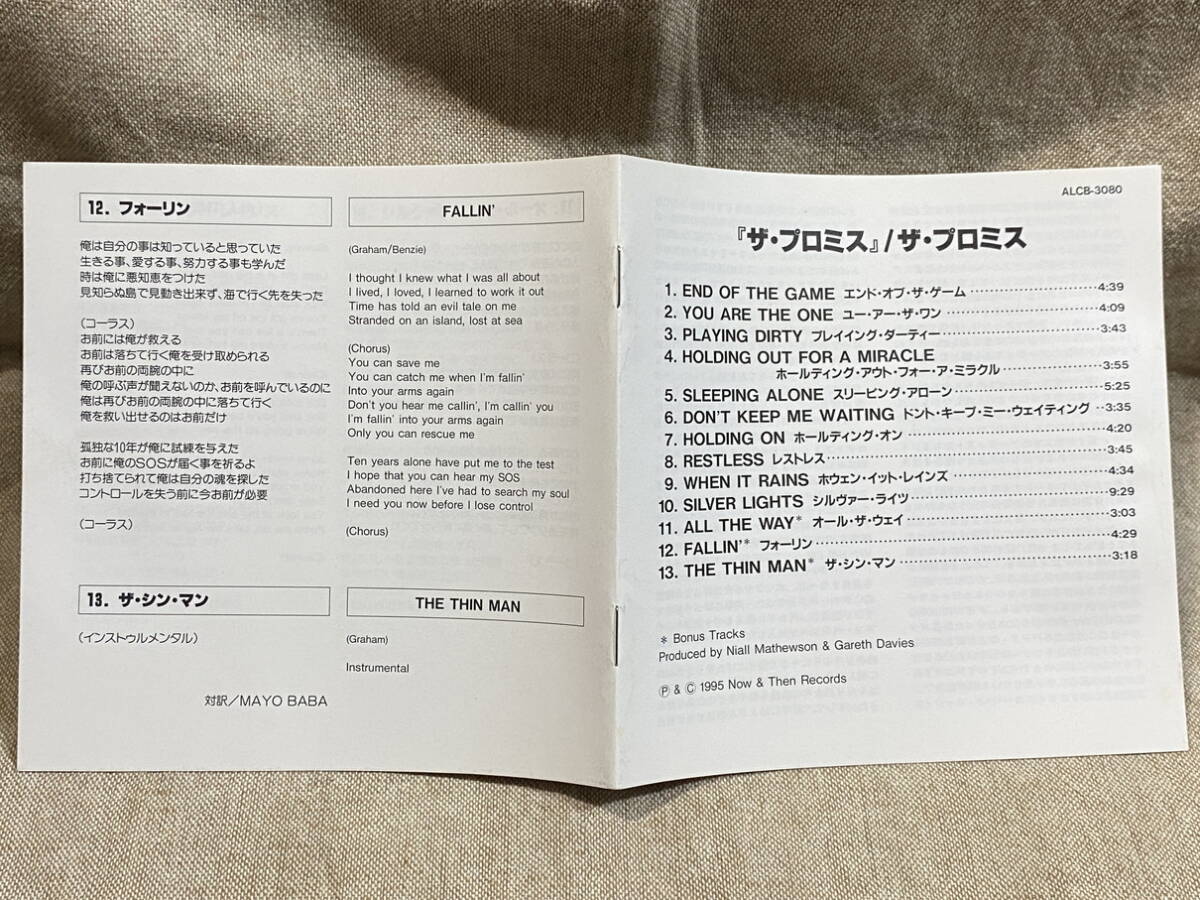 12. フォーリン
俺は自分の事は知っていると思っていた
生きる事、愛する事、努力する事も学んだ
時は俺に悪知恵をつけた
見知らぬ島で見動き出来ず、海で行く先を失った
(コーラス)
お前には俺が救える
お前は落ちて行く俺を受け取められる
再びお前の両腕の中に
俺の呼ぶ声が聞えないのか、お前を呼んでいるのに
俺は再びお前の両腕の中に落ちて行く
俺を救い出せるのはお前だけ
孤独な10年が俺に試練を与えた
お前に俺のSOSが届く事を祈るよ
打ち捨てられて俺は自分の魂を探した
コントロールを失う前に今お前が必要
(コーラス)
FALLIN'
(Graham/Benzie)
I thought I knew what I was all about
I lived, I loved, I learned to work it out
Time has told an evil tale on me
Stranded on an island, lost at sea
(Chorus)
You can save me
You can catch me when I'm fallin'
Into your arms again
Don't you hear me callin', I'm callin' you
I'm fallin' into your arms again
Only you can rescue me
Ten years alone have put me to the test
I hope that you can hear my SOS
Abandoned here I've had to search my soul
I need you now before I lose control
(Chorus)
13. ザ・シン・マン
(インストゥルメンタル)
THE THIN MAN
(Graham)
Instrumental
対訳/MAYO BABA
ALCB-3080
『ザ・プロミス』/ザ・プロミス
1. END OF THE GAME エンド・オブ・ザ・ゲーム ……………………4:39
2. YOU ARE THE ONE ユー・アー・ザ・ワン ……………………4:09
3. PLAYING DIRTY プレイイング・ダーティー ……………………3:43
4. HOLDING OUT FOR A MIRACLE
ホールディング・アウト・フォー・ア・ミラクル ……………………3:55
5. SLEEPING ALONE スリーピング・アローン ……………………5:25
6. DON'T KEEP ME WAITING ドント・キープ・ミー・ウェイティング ‥3:35
7. HOLDING ON ホールディング・オン ……………………4:20
8. RESTLESS レストレス ……………………3:45
9. WHEN IT RAINS ホウェン・イット・レインズ ……………………4:34
10. SILVER LIGHTS シルヴァー・ライツ ……………………9:29
11. ALL THE WAY* オール・ザ・ウェイ ……………………3:03
12. FALLIN'* フォーリン ……………………4:29
13. THE THIN MAN* ザ・シン・マン ……………………3:18
* Bonus Tracks
Produced by Niall Mathewson & Gareth Davies
Ⓟ & © 1995 Now & Then Records